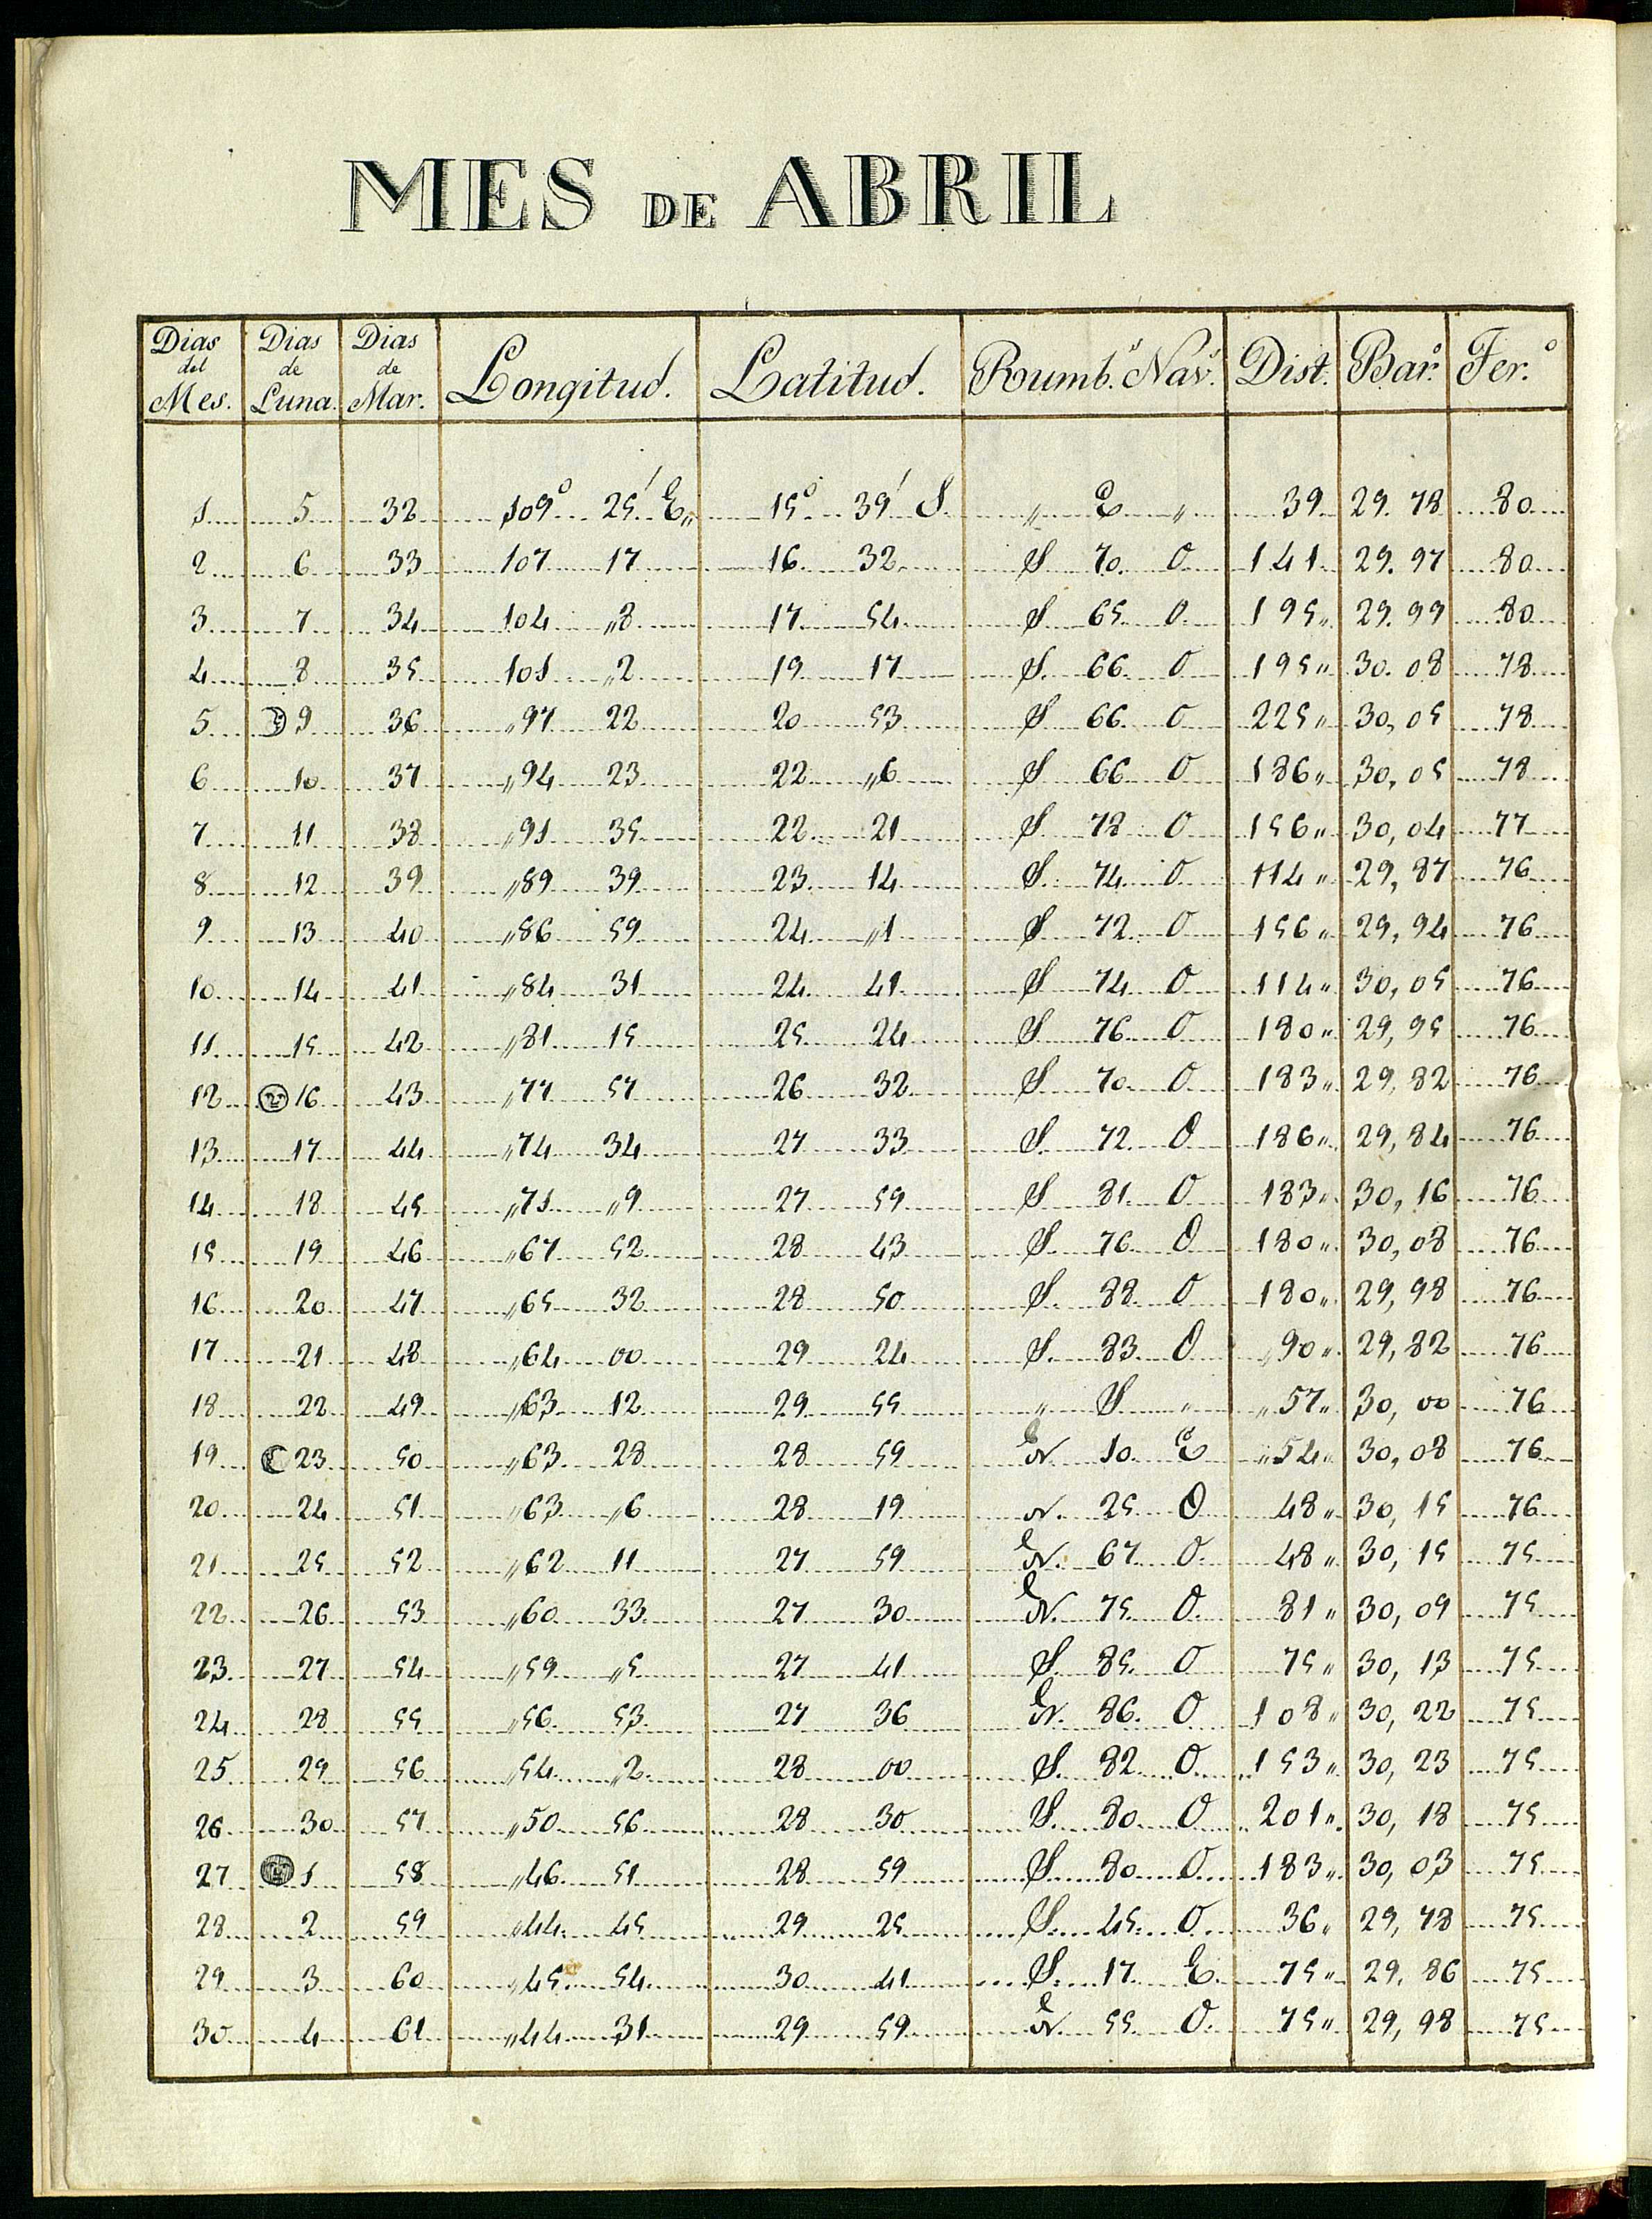 MES DE ABRIL
Dias del Mes. Dias de Luna. Dias de Mar. Longitud. Latitud. Rumb.s Nav.s Dist. Bar.o Ter.o
1 5 32 109° 25' E,, 15° 39' S. ,, E ,, 39 29.78 80
2 6 33 107 17 16 32 S 70 O 141 29.97 80
3 7 34 104 ,,8 17 54 S 65 O 195,, 29.99 80
4 8 35 101 ,,2 19 17 S. 66 O 195,, 30.08 78
5 9 36 ,,97 22 20 53 S 66 O 225,, 30,05 78
6 10 37 ,,94 23 22 ,,6 S 66 O 186,, 30,05 78
7 11 38 ,,91 35 22 21 S 78 O 156,, 30,04 77
8 12 39 ,,89 39 23 14 S. 74 O 114,, 29,87 76
9 13 40 ,,86 59 24 ,,1 S 72 O 156,, 29,94 76
10 14 41 ,,84 31 24 41 S 74 O 114,, 30,05 76
11 15 42 ,,81 15 25 24 S 76 O 180,, 29,95 76
12 16 43 ,,77 57 26 32 S 70 O 183,, 29,82 76
13 17 44 ,,74 34 27 33 S. 72 O 186,, 29,84 76
14 18 45 ,,71 ,,9 27 59 S 81 O 183,, 30,16 76
15 19 46 ,,67 52 28 43 S. 76 O 180,, 30,08 76
16 20 47 ,,65 32 28 50 S. 88 O 180,, 29,98 76
17 21 48 ,,64 00 29 24 S. 83 O ,,90,, 29,82 76
18 22 49 ,,63 12 29 55 ,, S ,, ,,57,, 30,00 76
19 23 50 ,,63 28 28 59 N. 10 E ,,54,, 30,08 76
20 24 51 ,,63 ,,6 28 19 N. 25 O 48,, 30,15 76
21 25 52 ,,62 11 27 59 N. 67 O 48,, 30,15 75
22 26 53 ,,60 33 27 30 N. 75 O. 81,, 30,09 75
23 27 54 ,,59 ,,5 27 41 S. 85 O 75,, 30,13 75
24 28 55 ,,56 53 27 36 N. 86. O 108,, 30,22 75
25 29 56 ,,54 ,,2 28 00 S. 82 O ,,153,, 30,23 75
26 30 57 ,,50 56 28 30 S. 80 O 201,, 30,18 75
27 1 58 ,,46 51 28 59 S 80 O 183,, 30,03 75
28 2 59 ,,44 45 29 25 S. 45 O. 36,, 29,78 75
29 3 60 ,,45 54 30 41 S. 17 E 75,, 29,86 75
30 4 61 ,,44 31 29 59 N. 55 O. 75,, 29,98 75